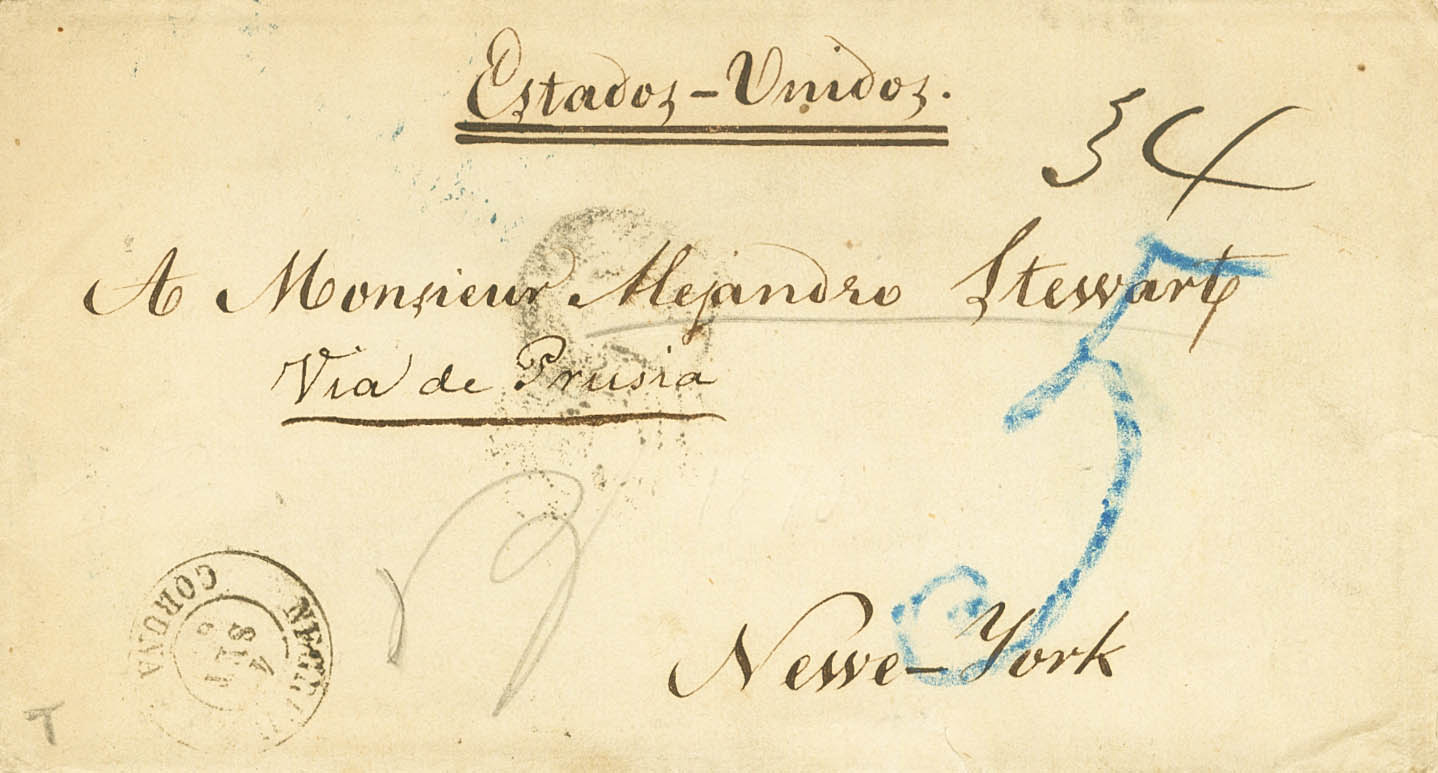 Estados-Unidos.
34
A Monsieur Alejandro Stewart
Via de Prusia
5
Newe-York
CORUÑA
4
SET
T